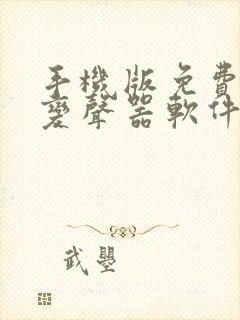 手機版免費
變聲器軟件
武曌